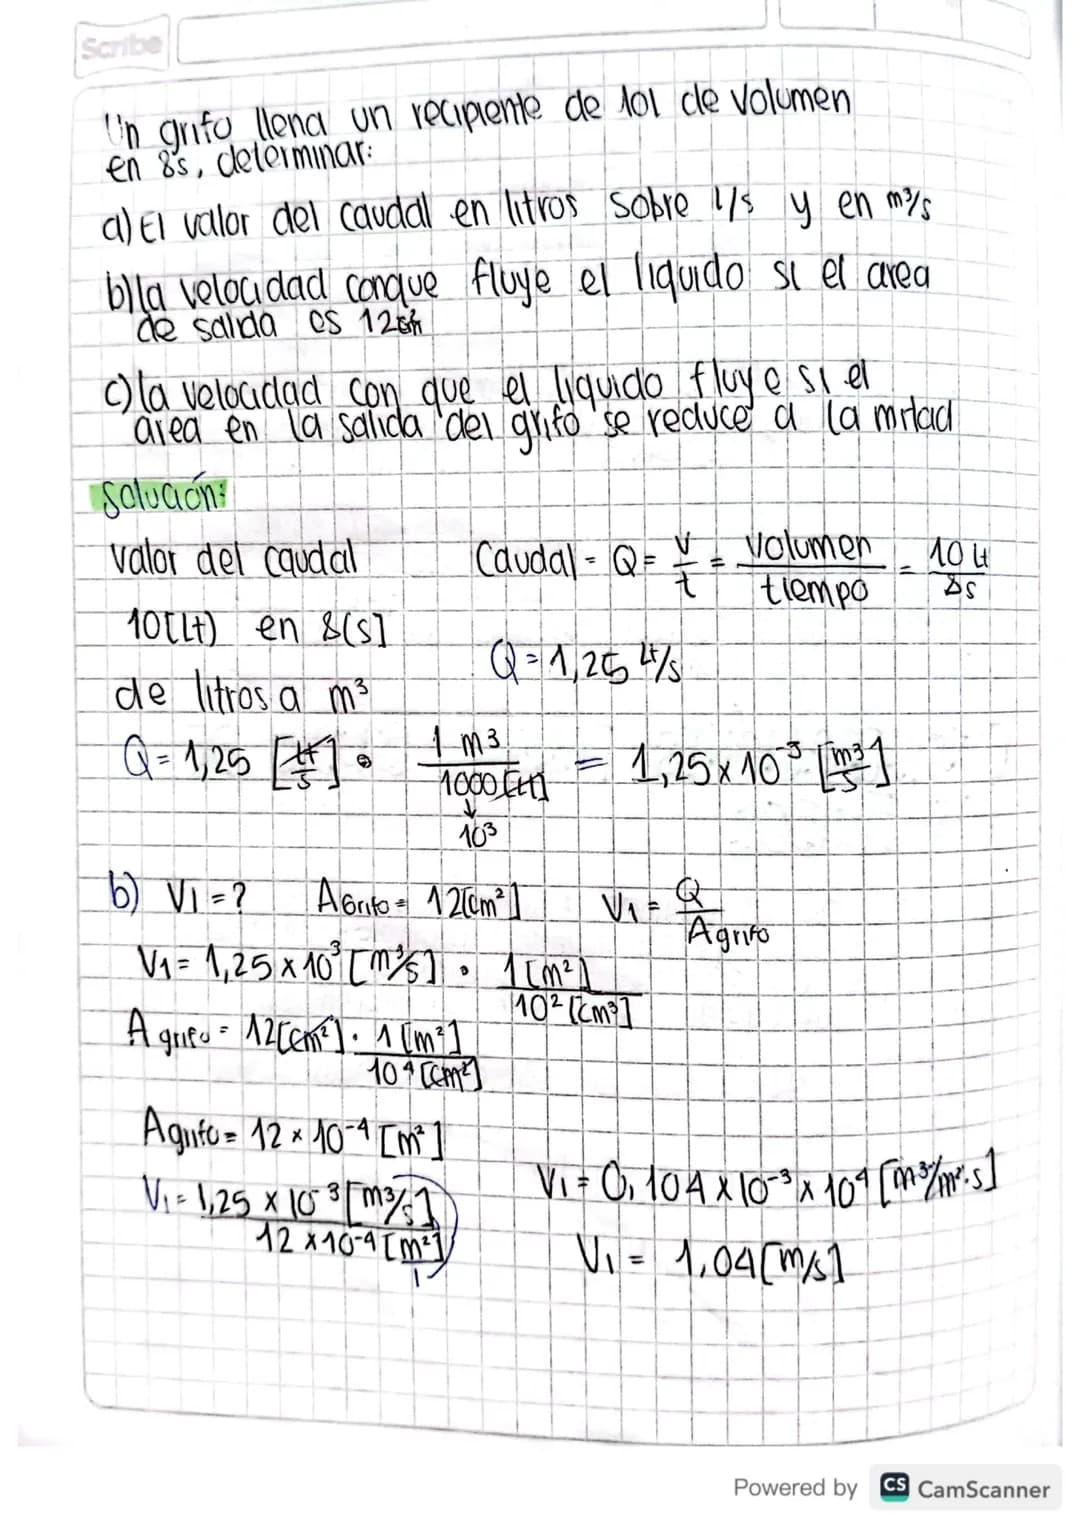 Scribe
Un grifo llena un recipiente de 10l de volumen
en 8s, determinar:
a) El valor del caudal en litros sobre l/s y en m³/s
b) la velocidad conque fluye el liquido si el area
de salida es 12
c) la velocidad con que el liquido fluye si el
area en la salida del grifo se reduce a la mitad
Solución:
valor del caudal
Caudal = Q = V/t = Volumen/tiempo = 10 Lt/8s
10[Lt) en 8(s]
Q = 1,25 Lt/s
de litros a m³
Q = 1,25 [Lt/s] • 1 m³/1000 [Lt] = 1,25 x 10⁻³ [m³/s]
↓
10³
b) V1 = ? AGrifo = 12[cm²] V1 = Q/Agrifo
V1 = 1,25 x 10³ [m³/s] • 1 [m²]/10² [cm³]
A grifo = 12[cm²] • 1 [m²]/10⁴ [cm²]
Agrifo = 12 x 10⁻⁴ [m²]
V1 = 1,25 x 10⁻³ [m³/s]/12 x 10⁻⁴ [m²]/1
V1 = 0,104 x 10⁻³ x 10⁴ [m³/m².s]
V1 = 1,04 [m/s]
Powered by CS CamScanner